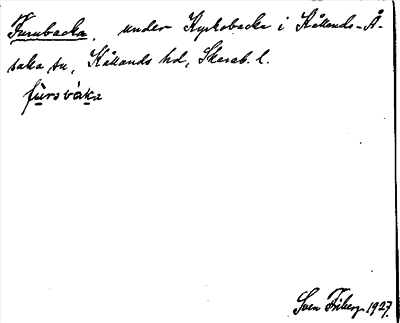 Furubacka, under Kyrkobacka i Kållands-Å-
saka sn, Kållands hd, Skarab. l.
Sven Friberg 1927.